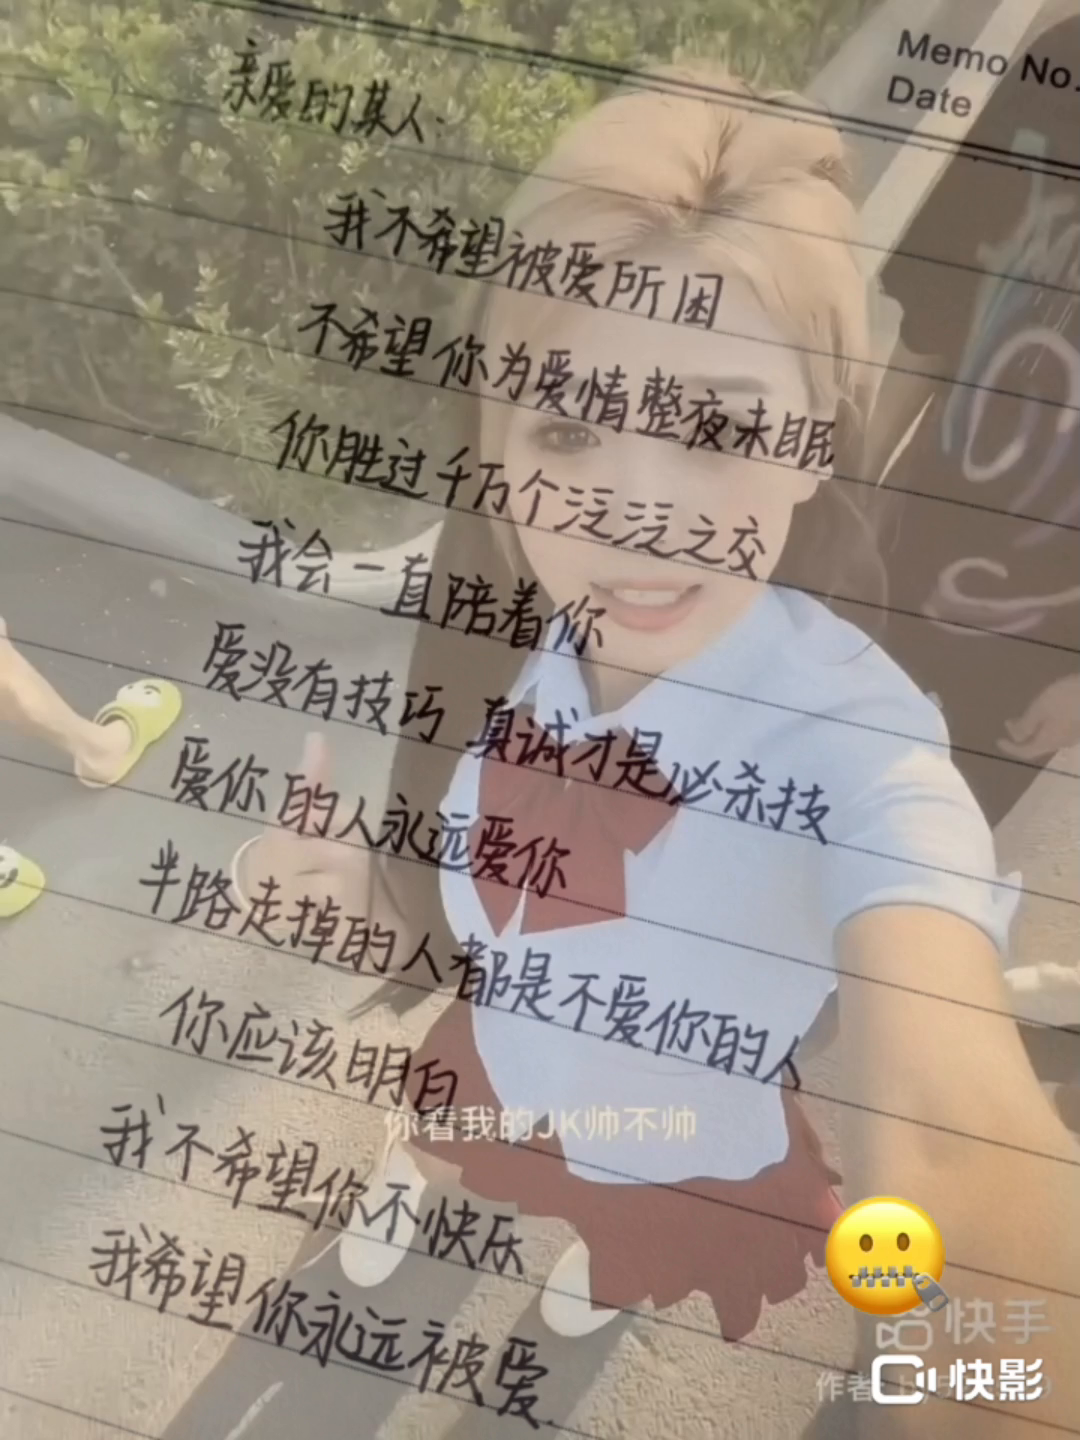 Memo No.
Date
亲爱的某人:
我不希望被爱所困
不希望你为爱情整夜未眠
你胜过千万个泛泛之交
我会一直陪着你
爱没有技巧 真诚才是必杀技
爱你的人永远爱你
半路走掉的人都是不爱你的人
你应该明白
你看我的JK帅不帅
我不希望你不快乐
我希望你永远被爱.
快手
快影
作者